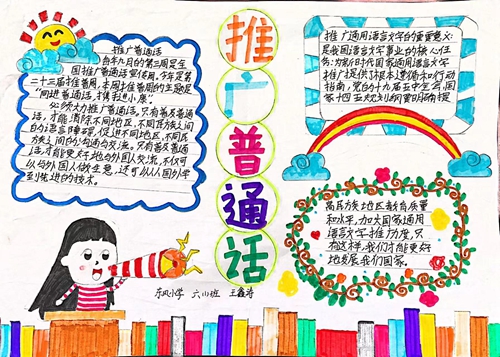 推广普通话
推广普通话
每年九月的第三周是全
国推广普通话宣传周。今年是第
二十三届推普周，本周推普周的主题是
“同讲普通话，携手进小康”
必须大力推广普通话。只有普及普通
话，才能消除不同地区、不同民族之间
的语言障碍，促进不同地区、不同民
族之间的沟通与交流。只有普及普通
话，才能更好地与外国人交流，不仅可
以与外国人做生意，还可以从国外学
到先进的技术。
推广通用语言文字的重要意义
是我国语言文字事业的核心任
务，为新时代国家通用语言文字
推广提供了根本遵循和行动
指南。党的十九届五中全会、国
家十四五规划纲要明确提
高民族地区教育质量
和水平，加大国家通用
语言文字推广力度，只
有这样，我们才能更好
地发展我们国家。
东风小学 六(1)班 王鑫涛